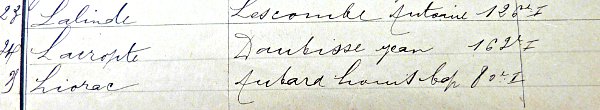 23 Lalinde Lescombe Antoine 126e I
24 Lavropte Daubisse jean 162e I
Liorac Aubard Louis cap 80e I